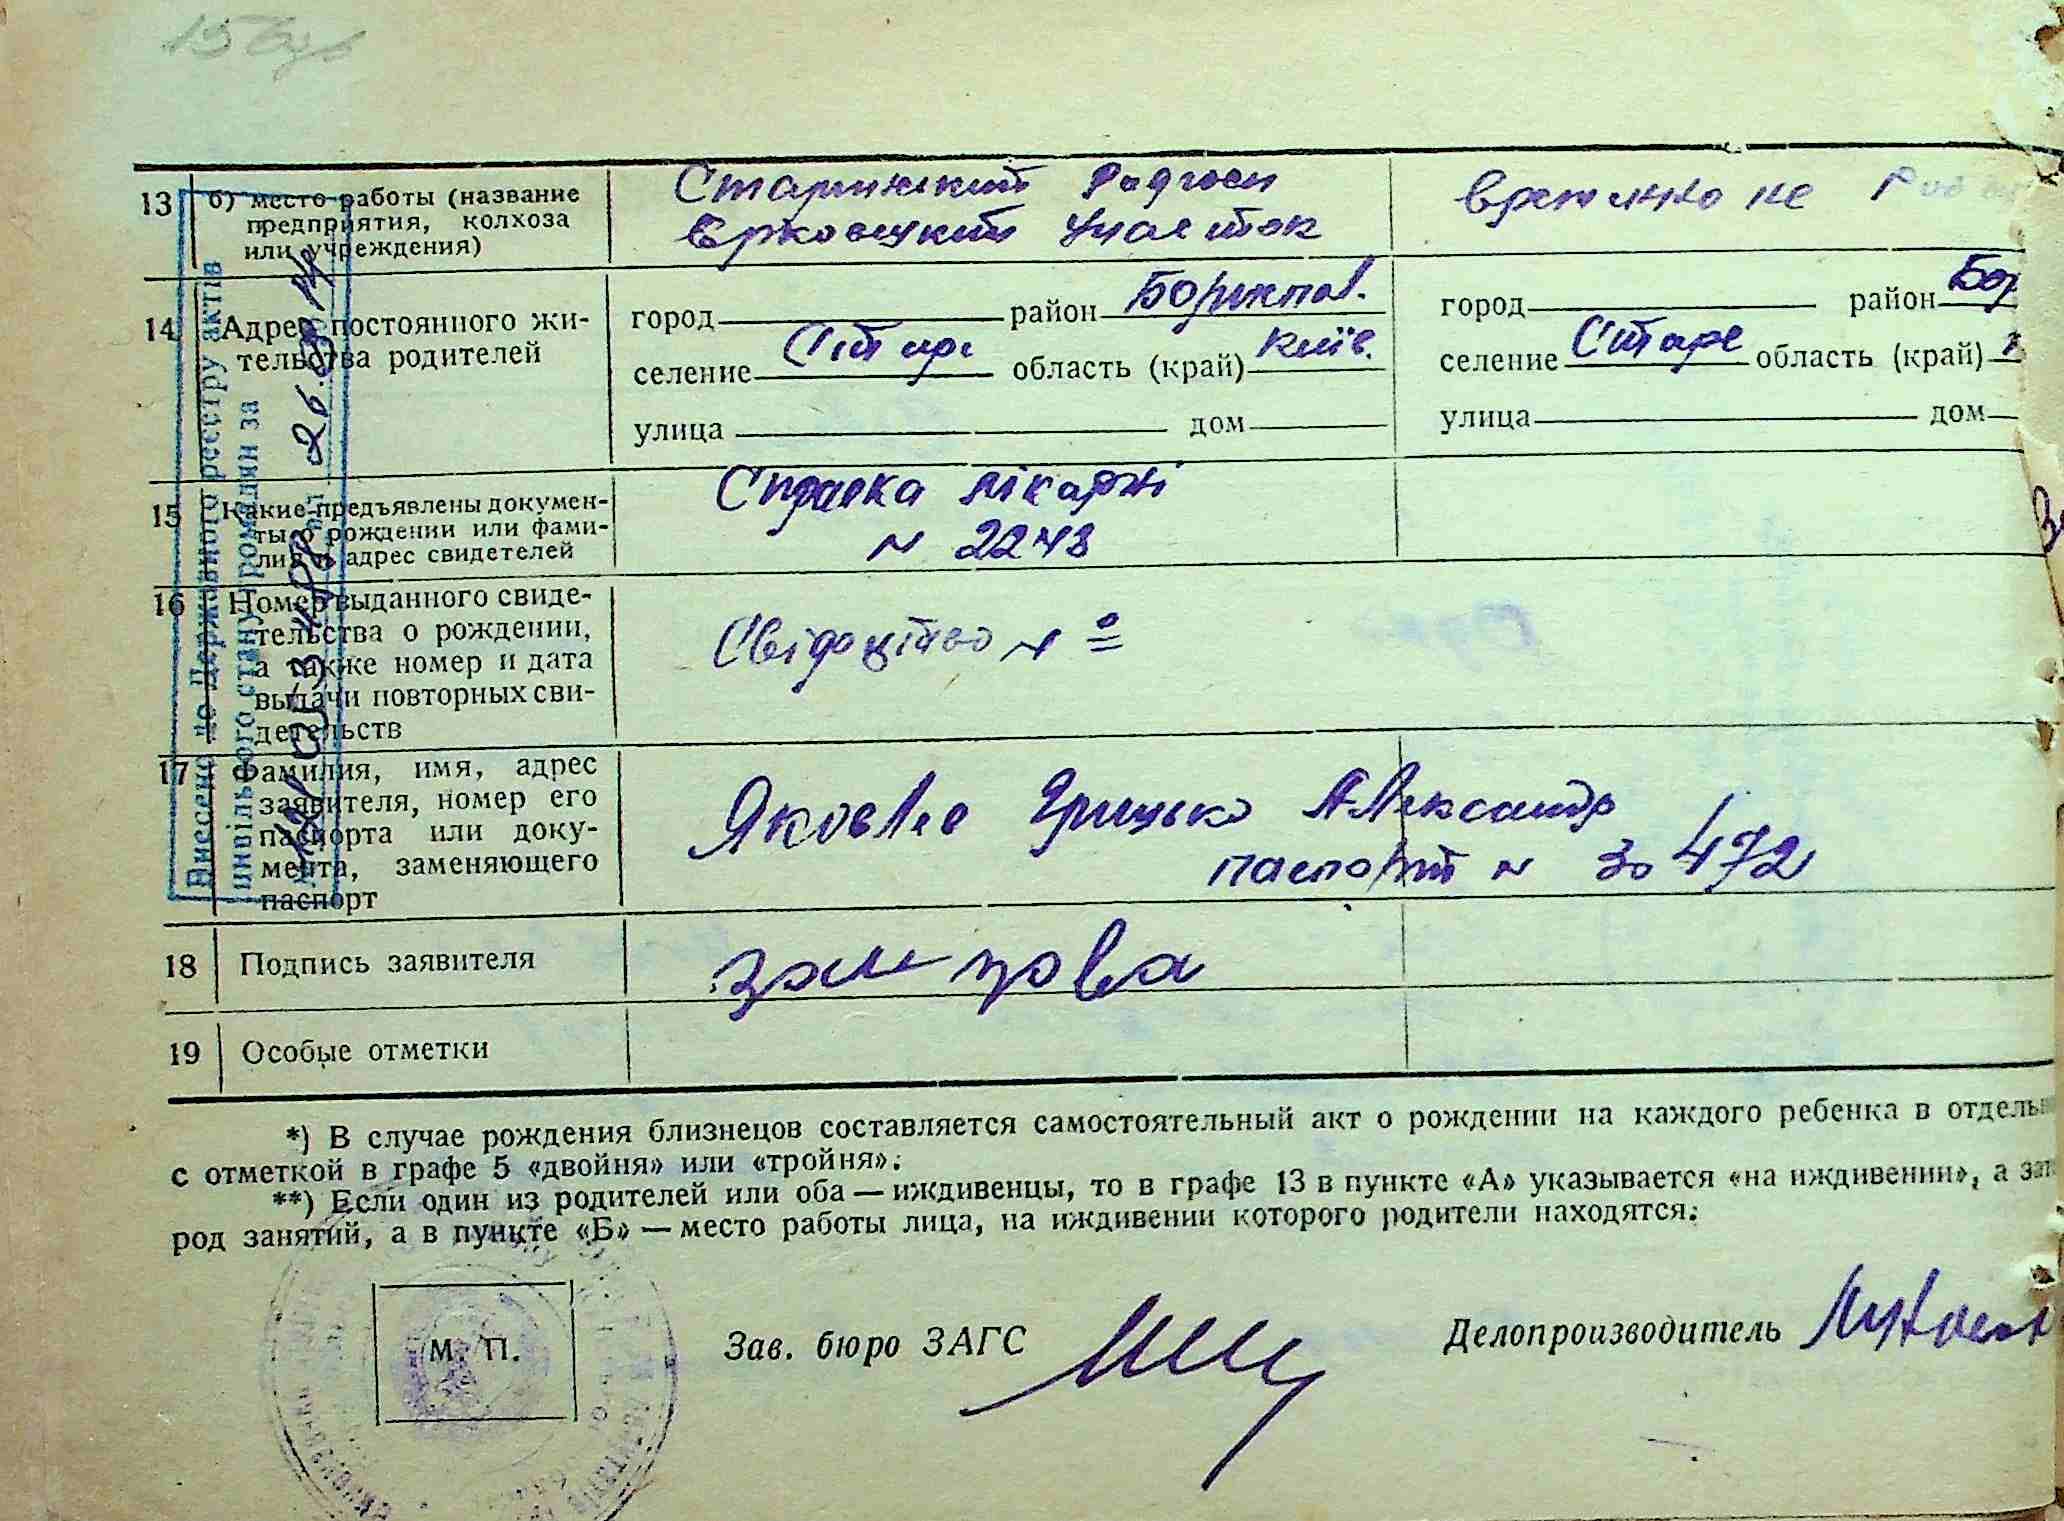 13 б) место работы (название
предприятия, колхоза
или учреждения)
Старинский Радгосп
Ерковецкий участок
временно не
14 Адрес постоянного жи-
тельства родителей
город район Бориспол.
селение Старе область (край) Київ.
улица дом
город район Бор
селение Старе область (край)
улица дом
15 Какие предъявлены докумен-
ты о рождении или фами-
лии и адрес свидетелей
Справка лікарні
№ 2243
16 Номер выданного свиде-
тельства о рождении,
а также номер и дата
выдачи повторных сви-
детельств
Свідоцтво №
17 Фамилия, имя, адрес
заявителя, номер его
паспорта или доку-
мента, заменяющего
паспорт
Яковлев Грицько Александр
паспорт № 30472
18 Подпись заявителя
19 Особые отметки
*) В случае рождения близнецов составляется самостоятельный акт о рождении на каждого ребенка в отдель
с отметкой в графе 5 «двойня» или «тройня».
**) Если один из родителей или оба — иждивенцы, то в графе 13 в пункте «А» указывается «на иждивении», а зат
род занятий, а в пункте «Б» — место работы лица, на иждивении которого родители находятся.
М. П.
Зав. бюро ЗАГС
Делопроизводитель
Внесено до Державного реєстру актів
цивільного стану громадян за